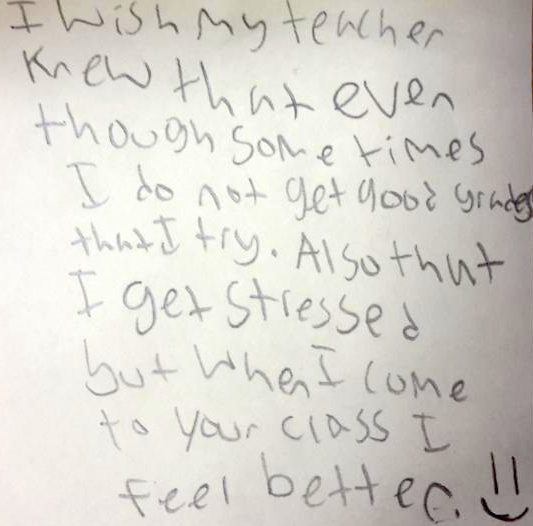 I wish my teacher
knew that even
though some times
I do not get good grades
that I try. Also that
I get stressed
but when I come
to your class I
feel better.